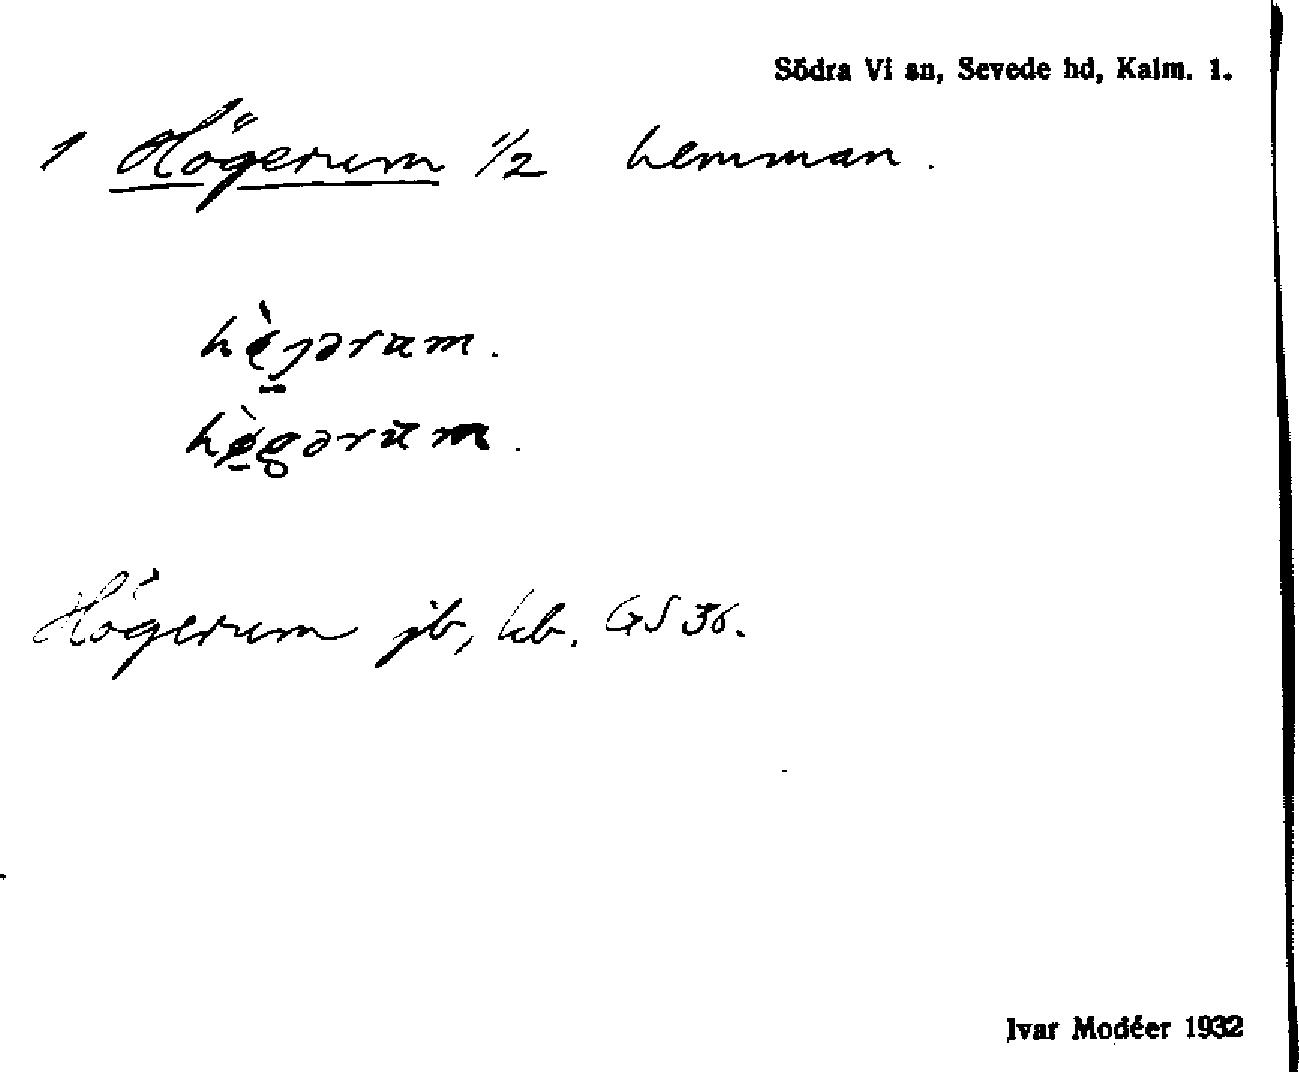 Södra Vi sn, Sevede hd, Kalm. l.
1 Högerum 1/2 hemman.
hø̠̀ȷərum.
hø̠̀gərum.
Högerum jb, kb. GS 36.
Ivar Modéer 1932